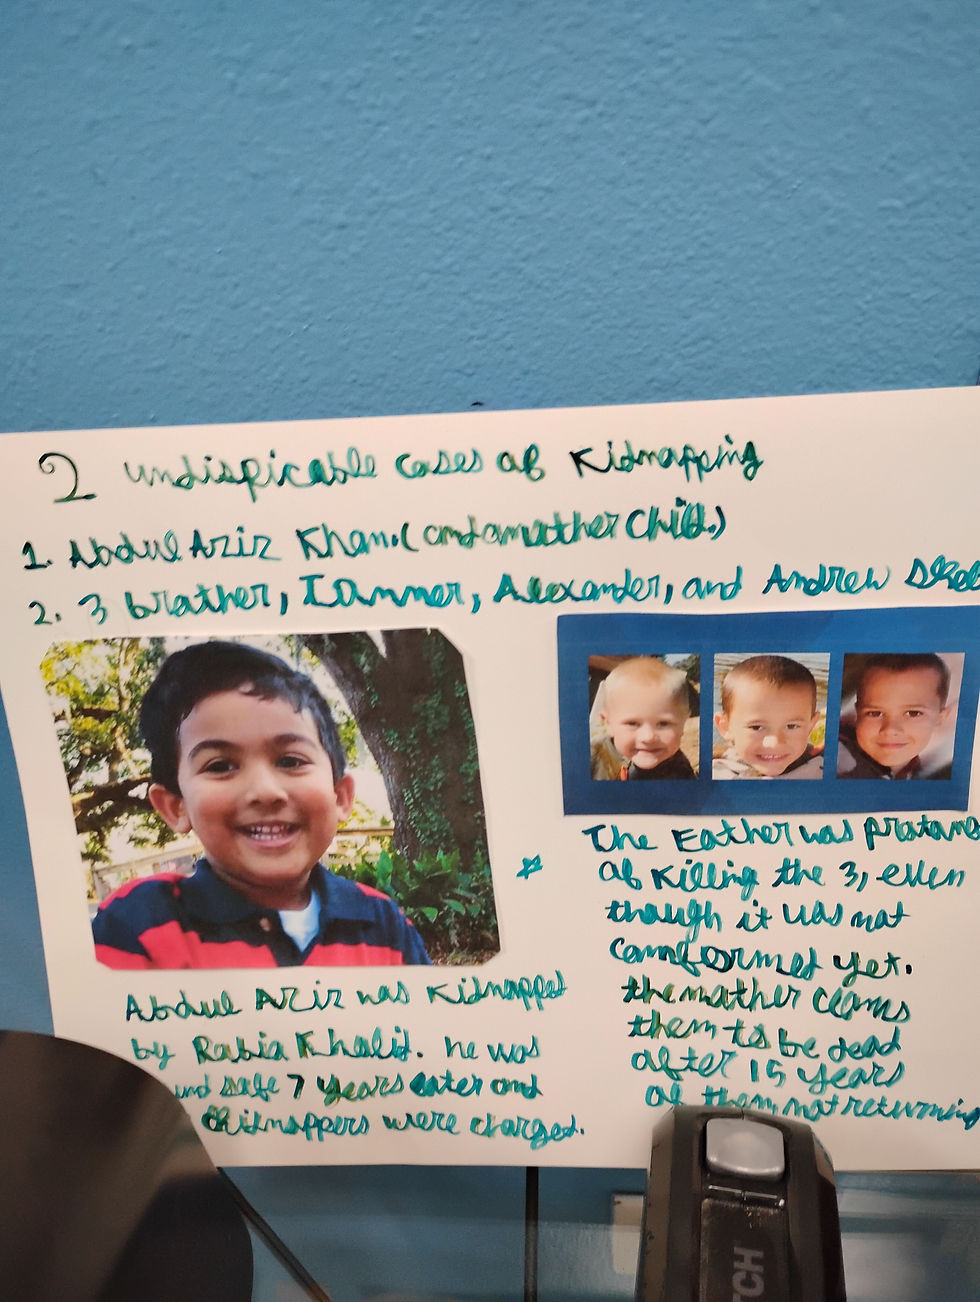 2 undispicable cases of Kidnapping
1. Abdul Aziz Khan. (and another child.)
2. 3 brother, Tanner, Alexander, and Andrew
Abdul Aziz was Kidnapped
by Rabia Khalid. he was
safe 7 years later and
Kidnappers were charged.
The Father was
of Killing the 3, even
though it was not
comformed yet.
the mother clams
them to be dead
after 15 years
of them not returning
TCH